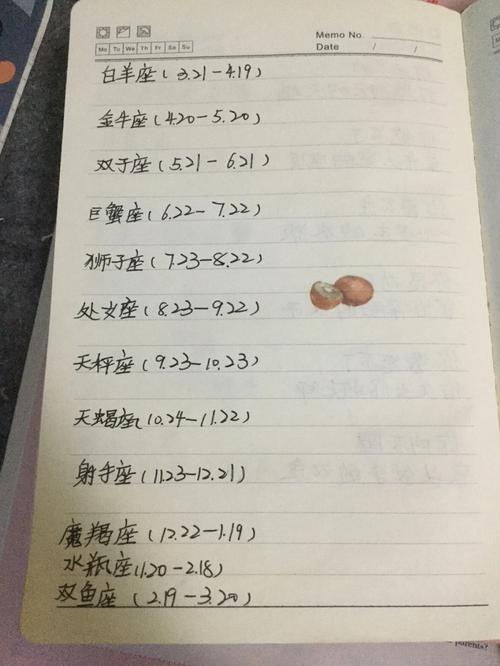 Memo No.
Mo Tu We Th Fr Sa Su
Date / /
白羊座(3.21-4.19)
金牛座(4.20-5.20)
双子座(5.21-6.21)
巨蟹座(6.22-7.22)
狮子座(7.23-8.22)
处女座(8.23-9.22)
天秤座(9.23-10.23)
天蝎座(10.24-11.22)
射手座(11.23-12.21)
魔羯座(12.22-1.19)
水瓶座(1.20-2.18)
双鱼座(2.19-3.20)
parents?